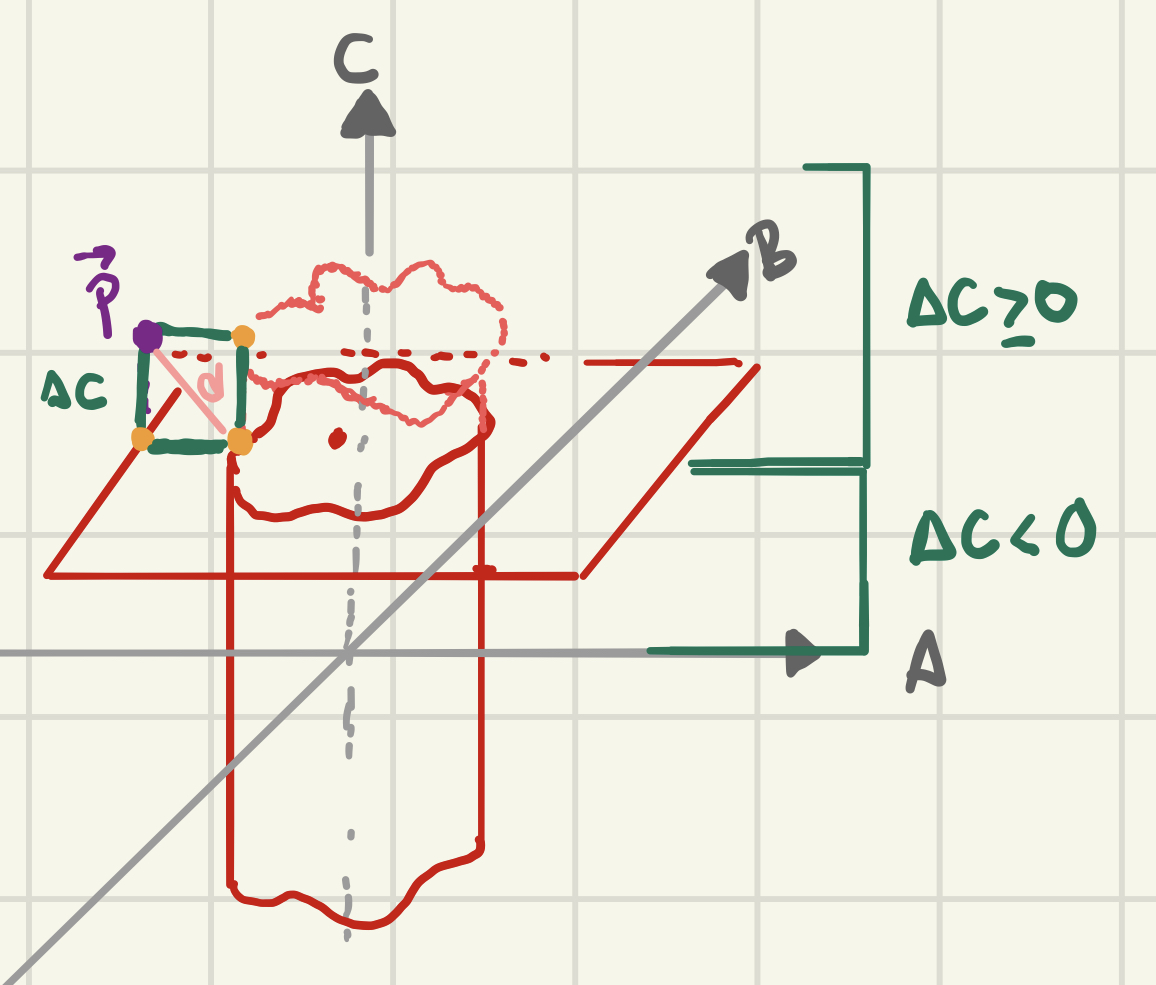 C
B
P⃗
ΔC ≥ 0
d
ΔC
ΔC < 0
A